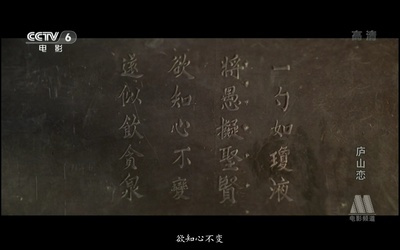 CCTV 6
电影
高清
一勺如瓊液
將愚擬聖賢
欲知心不變
還似飲貪泉
庐山恋
电影频道
欲知心不变